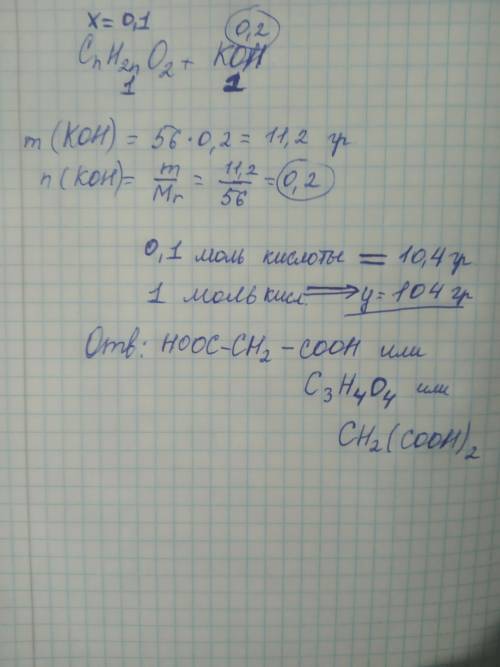 x = 0,1 0,2
CnH2nO2 + KOH
1 1
m (KOH) = 56 · 0,2 = 11,2 гр
n (KOH) = m/Mr = 11,2/56 = 0,2
0,1 моль кислоты = 10,4 гр
1 моль кисл. ⟹ y = 104 гр
Отв: HOOC-CH2-COOH или
C3H4O4 или
CH2(COOH)2